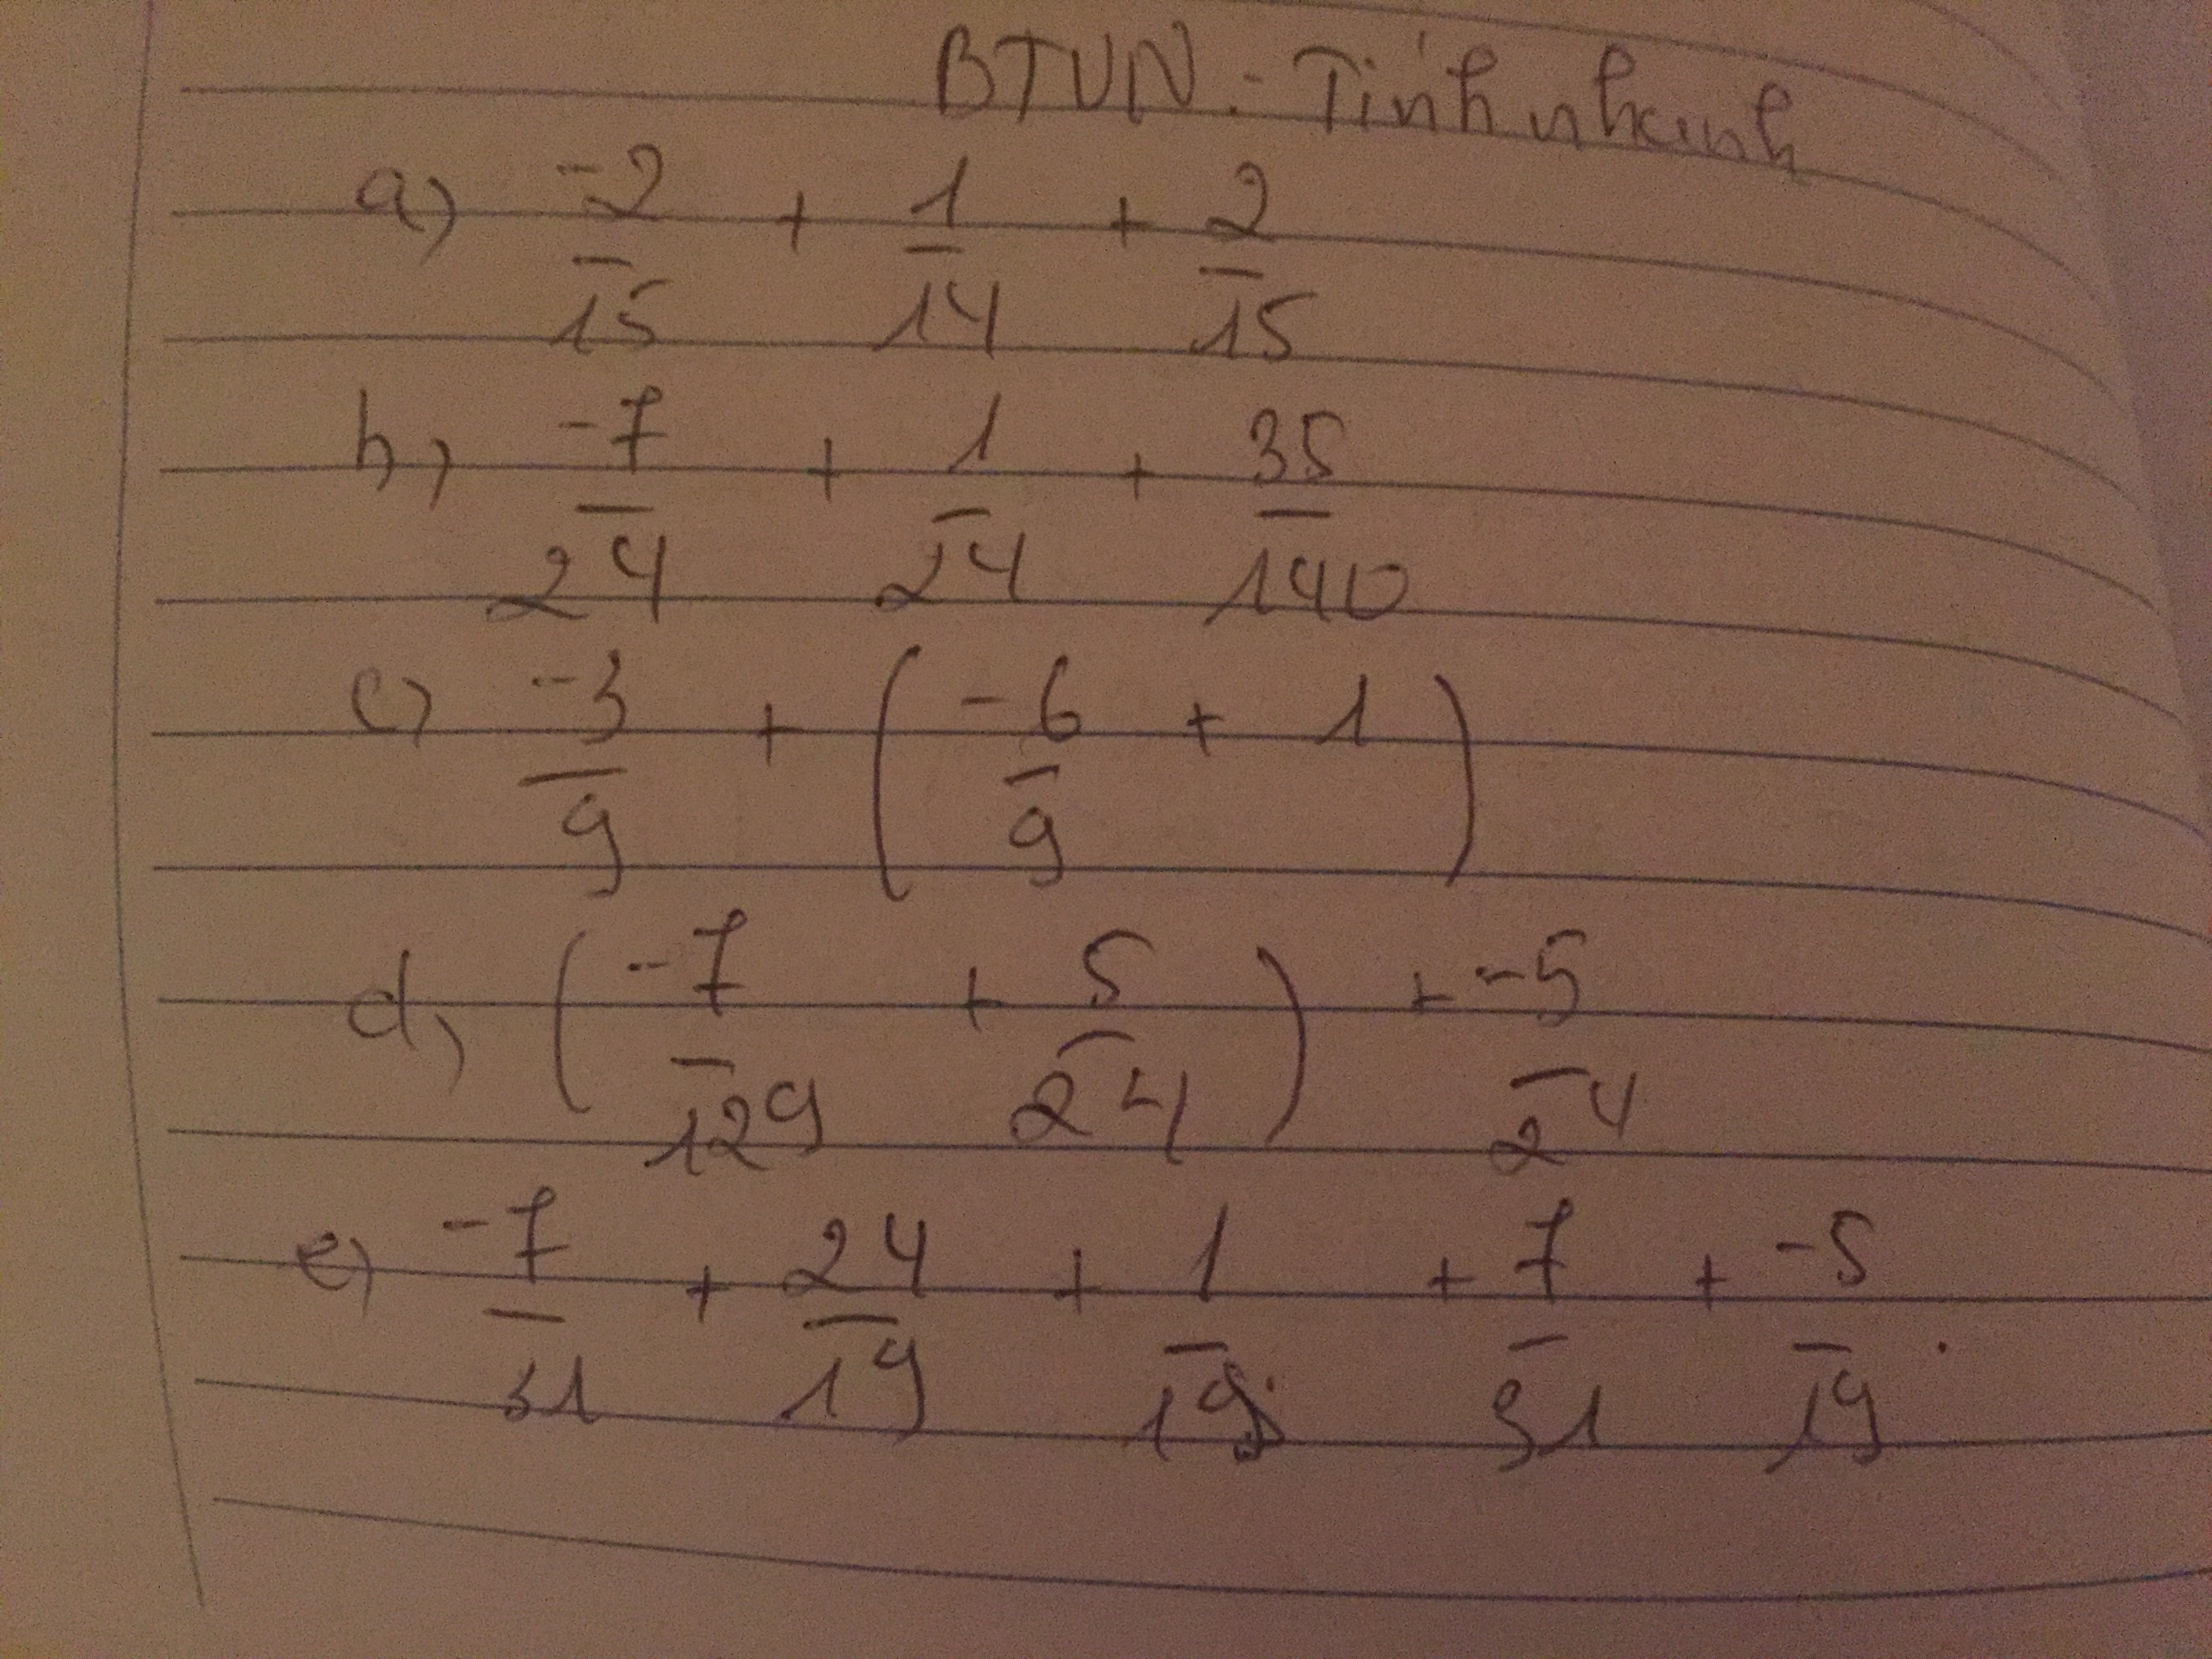 BTVN: Tính nhanh
a) -2/15 + 1/14 + 2/15
b, -7/24 + 1/24 + 35/140
c) -3/9 + (-6/9 + 1)
d, (-7/129 + 5/24) + -5/24
e) -7/31 + 24/19 + 1/19 + 7/31 + -5/19